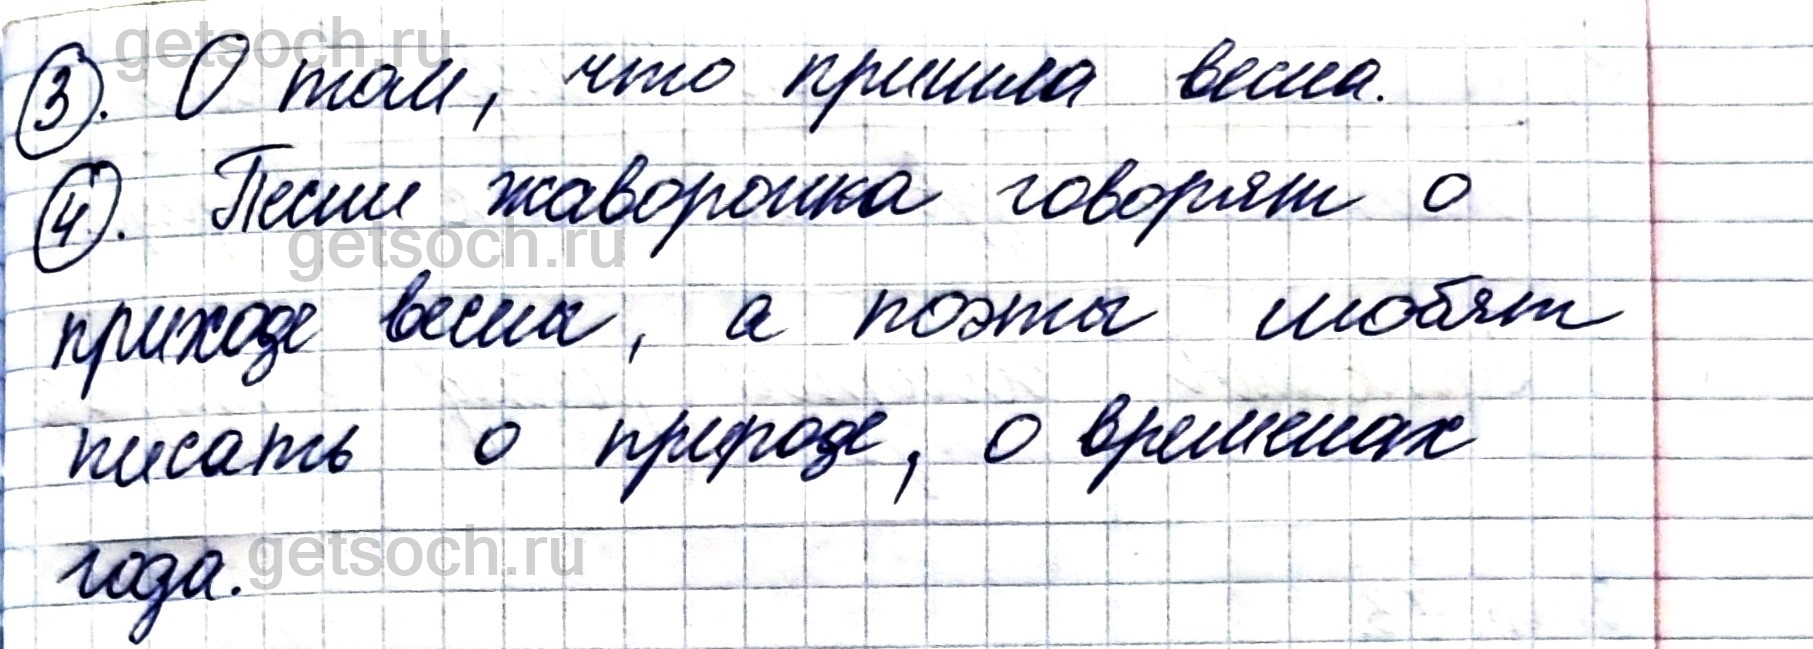 getsoch.ru
③. О том, что пришла весна.
④. Песни жаворонка говорят о
getsoch.ru
приходе весны, а поэты любят
писать о природе, о временах
года.
getsoch.ru